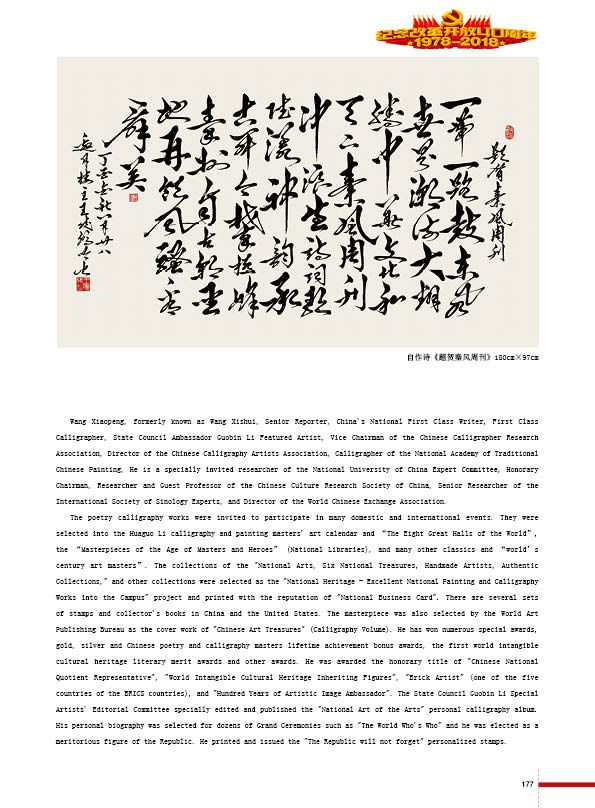 纪念改革开放40周年
1978-2018
题贺秦风周刊
一带一路鼓东风
世界潮流大翔
腾中華文化和
天下秦风周刊
冲浪生诗词
神韵承
古開今攀極峰
地再領風騷看
群英
自作诗《题贺秦风周刊》180cm×97cm
Wang Xiaopeng, formerly known as Wang Xishui, Senior Reporter, China's National First Class Writer, First Class
Calligrapher, State Council Ambassador Guobin Li Featured Artist, Vice Chairman of the Chinese Calligrapher Research
Association, Director of the Chinese Calligraphy Artists Association, Calligrapher of the National Academy of Traditional
Chinese Painting, He is a specially invited researcher of the National University of China Expert Committee, Honorary
Chairman, Researcher and Guest Professor of the Chinese Culture Research Society of China, Senior Researcher of the
International Society of Sinology Experts, and Director of the World Chinese Exchange Association.
The poetry calligraphy works were invited to participate in many domestic and international events. They were
selected into the Huaguo Li calligraphy and painting masters' art calendar and “The Eight Great Halls of the World”,
the “Masterpieces of the Age of Masters and Heroes” (National Libraries), and many other classics and “world's
century art masters”. The collections of the "National Arts, Six National Treasures, Handmade Artists, Authentic
Collections," and other collections were selected as the "National Heritage - Excellent National Painting and Calligraphy
Works into the Campus" project and printed with the reputation of "National Business Card". There are several sets
of stamps and collector's books in China and the United States. The masterpiece was also selected by the World Art
Publishing Bureau as the cover work of "Chinese Art Treasures" (Calligraphy Volume). He has won numerous special awards,
gold, silver and Chinese poetry and calligraphy masters lifetime achievement bonus awards, the first world intangible
cultural heritage literary merit awards and other awards. He was awarded the honorary title of "Chinese National
Quotient Representative", "World Intangible Cultural Heritage Inheriting Figures", "Brick Artist" (one of the five
countries of the BRICS countries), and "Hundred Years of Artistic Image Ambassador". The State Council Guobin Li Special
Artists' Editorial Committee specially edited and published the "National Art of the Arts" personal calligraphy album.
His personal biography was selected for dozens of Grand Ceremonies such as "The World Who's Who" and he was elected as a
meritorious figure of the Republic. He printed and issued the "The Republic will not forget" personalized stamps.
177